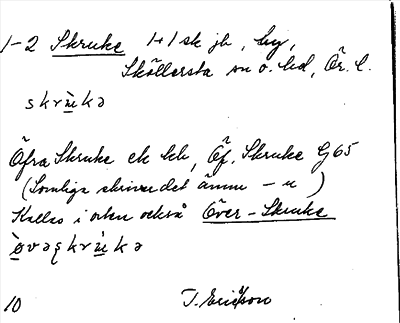 1-2 Skruke 1+1 sk jb, by,
Sköllersta sn o. hd, Ör. l.
skrὺkə
Öfra Skruke ek kb, Öf. Skruke G 65
(Somliga skriver det ännu - u)
Kallas i orten också Över-Skruke
ὸvəʂkrὺkə
10 T. Ericsson